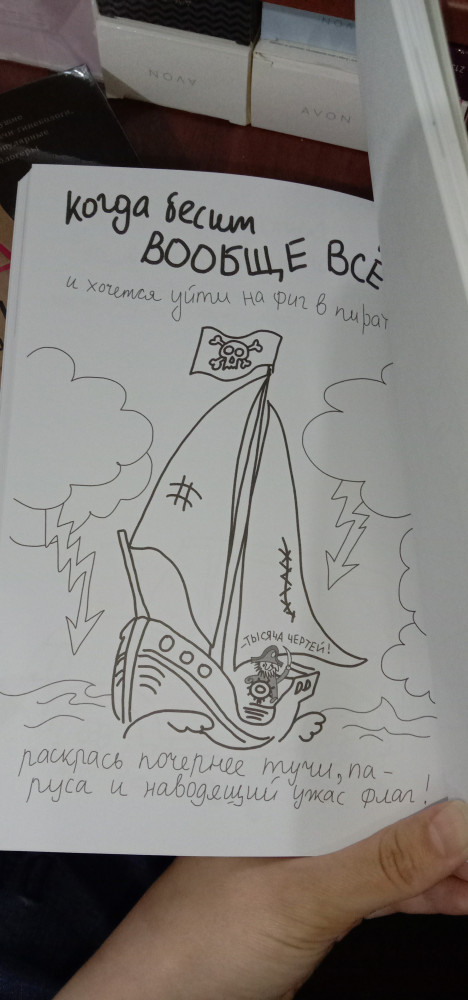 AVON
AVON
когда бесит
ВООБЩЕ ВСЁ
и хочется уйти на фиг в пират
-ТЫСЯЧА ЧЕРТЕЙ!
раскрась почернее тучи, па-
руса и наводящий ужас флаг!